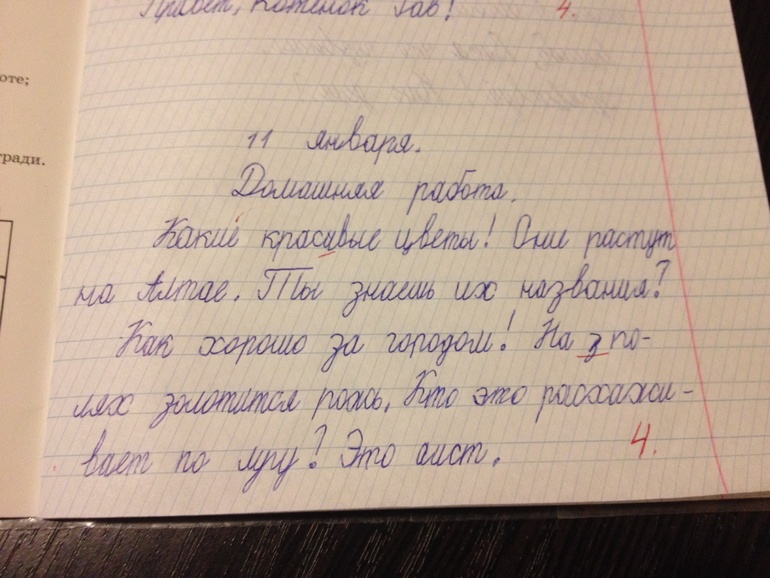 Привет, Котёнок Гав! 4.
оте;
тради.
11 января.
Домашняя работа.
Какие красивые цветы! Они растут
на Алтае. Ты знаешь их названия?
Как хорошо за городом! На з по-
лях золотится рожь. Кто это расхажи-
вает по лугу? Это аист. 4.